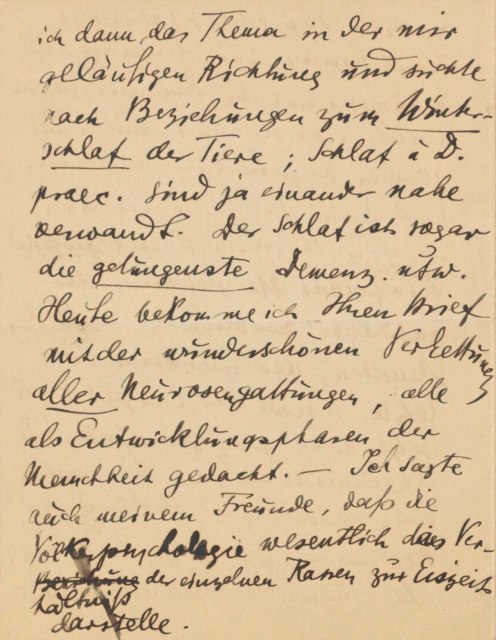 ich dann das Thema in der mir
gelläufigen Richtung und suchte
nach Beziehungen zum Winter-
schlaf der Tiere; Schlaf u D.
praec. sind ja einander nahe
verwandt. Der Schlaf ist sogar
die gelungenste Demenz. usw.
Heute bekomme ich Ihren Brief
mit der wunderschönen Verkettung
aller Neurosengattungen, alle
als Entwicklungsphasen der
Menschheit gedacht. — Ich sagte
auch meinem Freunde, daß die
Völkerpsychologie wesentlich das Ver-
hältniß der einzelnen Rassen zur Eiszeit
darstelle.